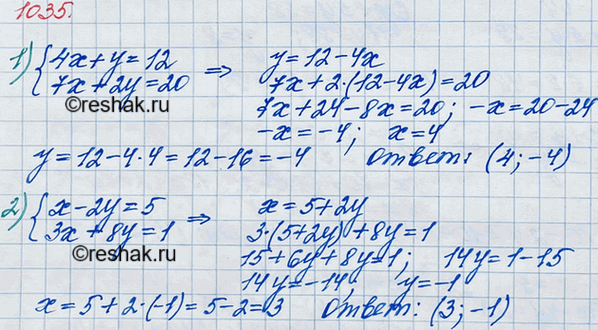 1035.
1) {4x+y=12 ⇒ y=12-4x
{7x+2y=20 7x+2·(12-4x)=20
©reshak.ru 7x+24-8x=20; -x=20-24
-x=-4; x=4
y=12-4·4=12-16=-4 Ответ: (4; -4)
2) {x-2y=5 ⇒ x=5+2y
{3x+8y=1 3·(5+2y)+8y=1
©reshak.ru 15+6y+8y=1; 14y=1-15
14y=-14; y=-1
x=5+2·(-1)=5-2=3 Ответ: (3; -1)